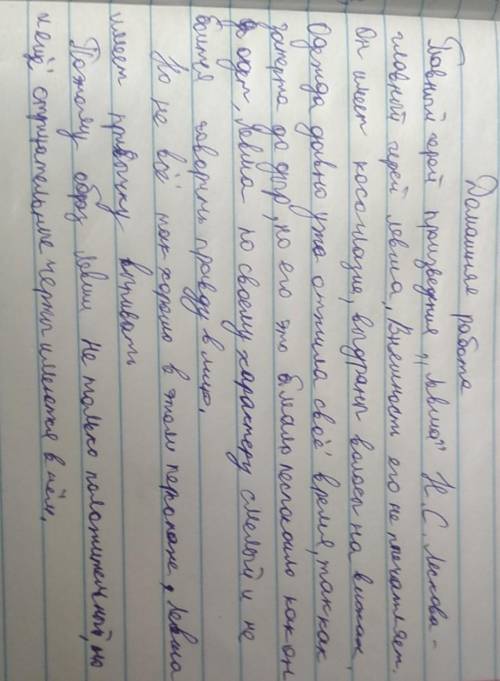 Домашняя работа
Главный герой произведения "Левша" Н. С. Лескова -
главный герой левша. Внешность его не впечатляет.
Он имеет косоглазие, выдраны волосы на висках.
Одежда давно уже отжила своё время, так как
затерта до дыр, но его это мало беспокоило как он
одет, Левша по своему характеру смелый и не
боится говорить правду в лицо.
Но не всё так хорошо в этом персонаже, Левша
имеет привычку выпивать
Поэтому образ Левши не только положительный, но
и ещё отрицательные черты имеются в нём.